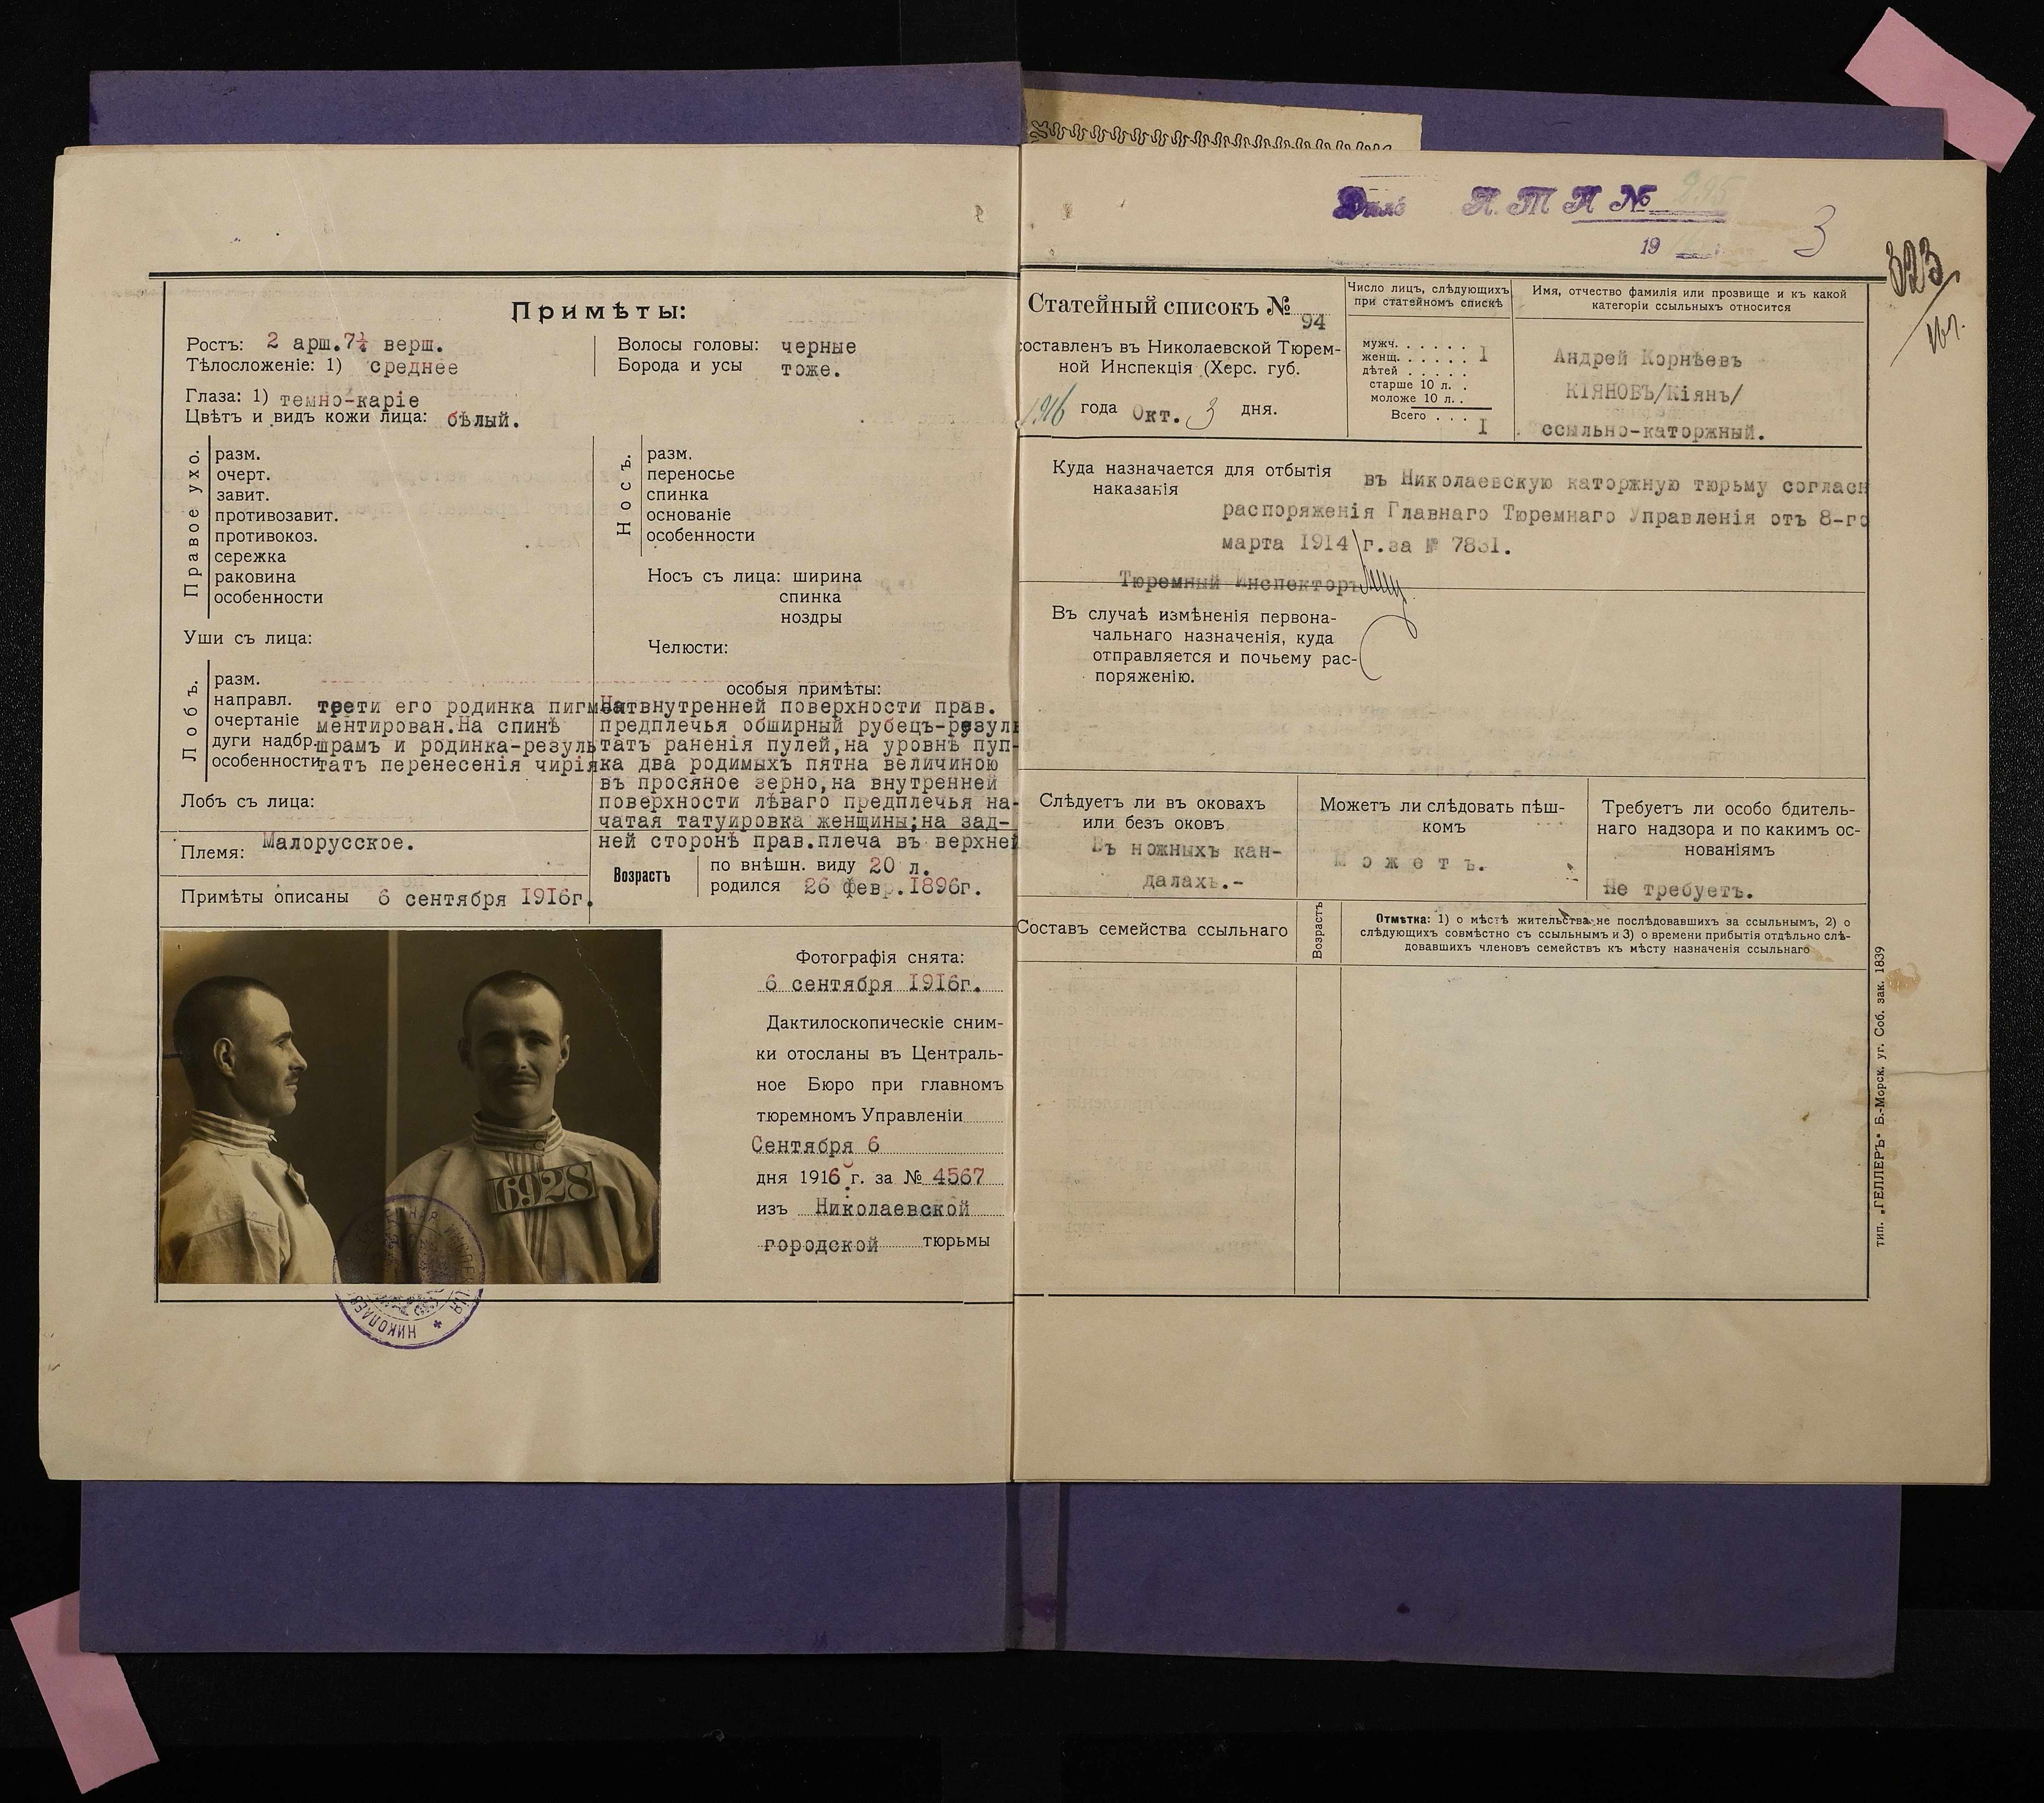 Примѣты:
Ростъ: 2 арш. 7¼ верш.
Тѣлосложеніе: 1) среднее
Глаза: 1) темно-каріе
Цвѣтъ и видъ кожи лица: бѣлый.
Волосы головы: черные
Борода и усы тоже.
Правое ухо.
разм.
очерт.
завит.
противозавит.
противокоз.
сережка
раковина
особенности
Уши съ лица:
Носъ.
разм.
переносье
спинка
основаніе
особенности
Носъ съ лица: ширина
спинка
ноздры
Челюсти:
Лобъ.
разм.
направл.
очертаніе
дуги надбр.
особенности
Лобъ съ лица:
особыя примѣты:
внутренней поверхности прав.
предплечья обширный рубецъ-резуль
татъ раненія пулей,на уровнѣ пуп-
ка два родимыхъ пятна величиною
въ просяное зерно,на внутренней
поверхности лѣваго предплечья на-
чатая татуировка женщины;на зад-
ней сторонѣ прав.плеча въ верхней
трети его родинка
ментирован.На спинѣ
шрамъ и родинка-резуль
татъ перенесенія чирія
Племя: Малорусское.
Примѣты описаны 6 сентября 1916г.
Возрастъ
по внѣшн. виду 20 л.
родился 26 февр. 1896г.
6928
Фотографія снята:
6 сентября 1916г.
Дактилоскопическіе сним-
ки отосланы въ Централь-
ное Бюро при главномъ
тюремномъ Управленіи
Сентября 6
дня 1916 г. за № 4567
изъ Николаевской
городской тюрьмы
НИКОЛАЕВ
Дѣло Н. Т И №
19
3
323
Статейный списокъ № 94
составленъ въ Николаевской Тюрем-
ной Инспекція (Херс. губ.
1916 года Окт. 3 дня.
Число лицъ, слѣдующихъ
при статейномъ спискѣ
мужч. . . . . . I
женщ. . . . . .
дѣтей . . . . .
старше 10 л. .
моложе 10 л. .
Всего . . . I
Имя, отчество фамилія или прозвище и къ какой
категоріи ссыльныхъ относится
Андрей Корнѣевъ
КІЯНОВЪ/Кіянъ/
ссыльно-каторжный.
Куда назначается для отбытія
наказанія
въ Николаевскую каторжную тюрьму согласн
распоряженія Главнаго Тюремнаго Управленія отъ 8-го
марта 1914 г.за № 7831.
Тюремный Инспекторъ
Въ случаѣ измѣненія первона-
чальнаго назначенія, куда
отправляется и почьему рас-
поряженію.
Слѣдуетъ ли въ оковахъ
или безъ оковъ
Въ ножныхъ кан-
далахъ.-
Можетъ ли слѣдовать пѣш-
комъ
Можетъ.
Требуетъ ли особо бдитель-
наго надзора и по какимъ ос-
нованіямъ
Не требуетъ.
Составъ семейства ссыльнаго
Возрастъ
Отмѣтка: 1) о мѣстѣ жительства не послѣдовавшихъ за ссыльнымъ, 2) о
слѣдующихъ совмѣстно съ ссыльнымъ и 3) о времени прибытія отдѣльно слѣ-
довавшихъ членовъ семействъ къ мѣсту назначенія ссыльнаго
тип. „ГЕЛЛЕРЪ" Б.-Морск. уг. Соб. зак. 1839